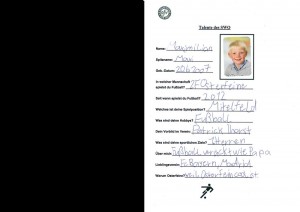 Talente des SWO
Name: Maximilian
Spitzname: Maxi
Geb. Datum: 2007
In welcher Mannschaft
spielst du Fußball? SF Osterfeine
Seit wann spielst du Fußball? 2012
Welches ist deine Spielposition? Mittelfeld
Was sind deine Hobbys? Fußball
Dein Vorbild im Verein: Patrick
Was sind deine sportlichen Ziele? 1 Herren
Über mich: Fußball verückt wie Papa
Lieblingsverein: Fc Bayern, Madrid
Warum Osterfeine? weil Osterfeine